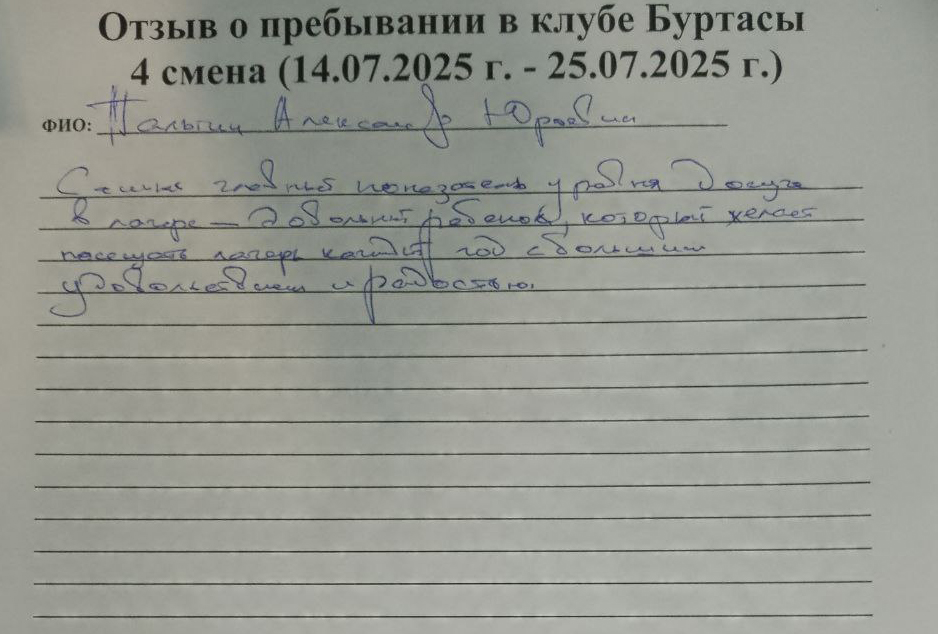 Отзыв о пребывании в клубе Буртасы
4 смена (14.07.2025 г. - 25.07.2025 г.)
ФИО: Палыгин Александр Юрьевич
Самый главный показатель уровня досуга
в лагере — довольный ребенок, который желает
посещать лагерь каждый год с большим
удовольствием и радостью.